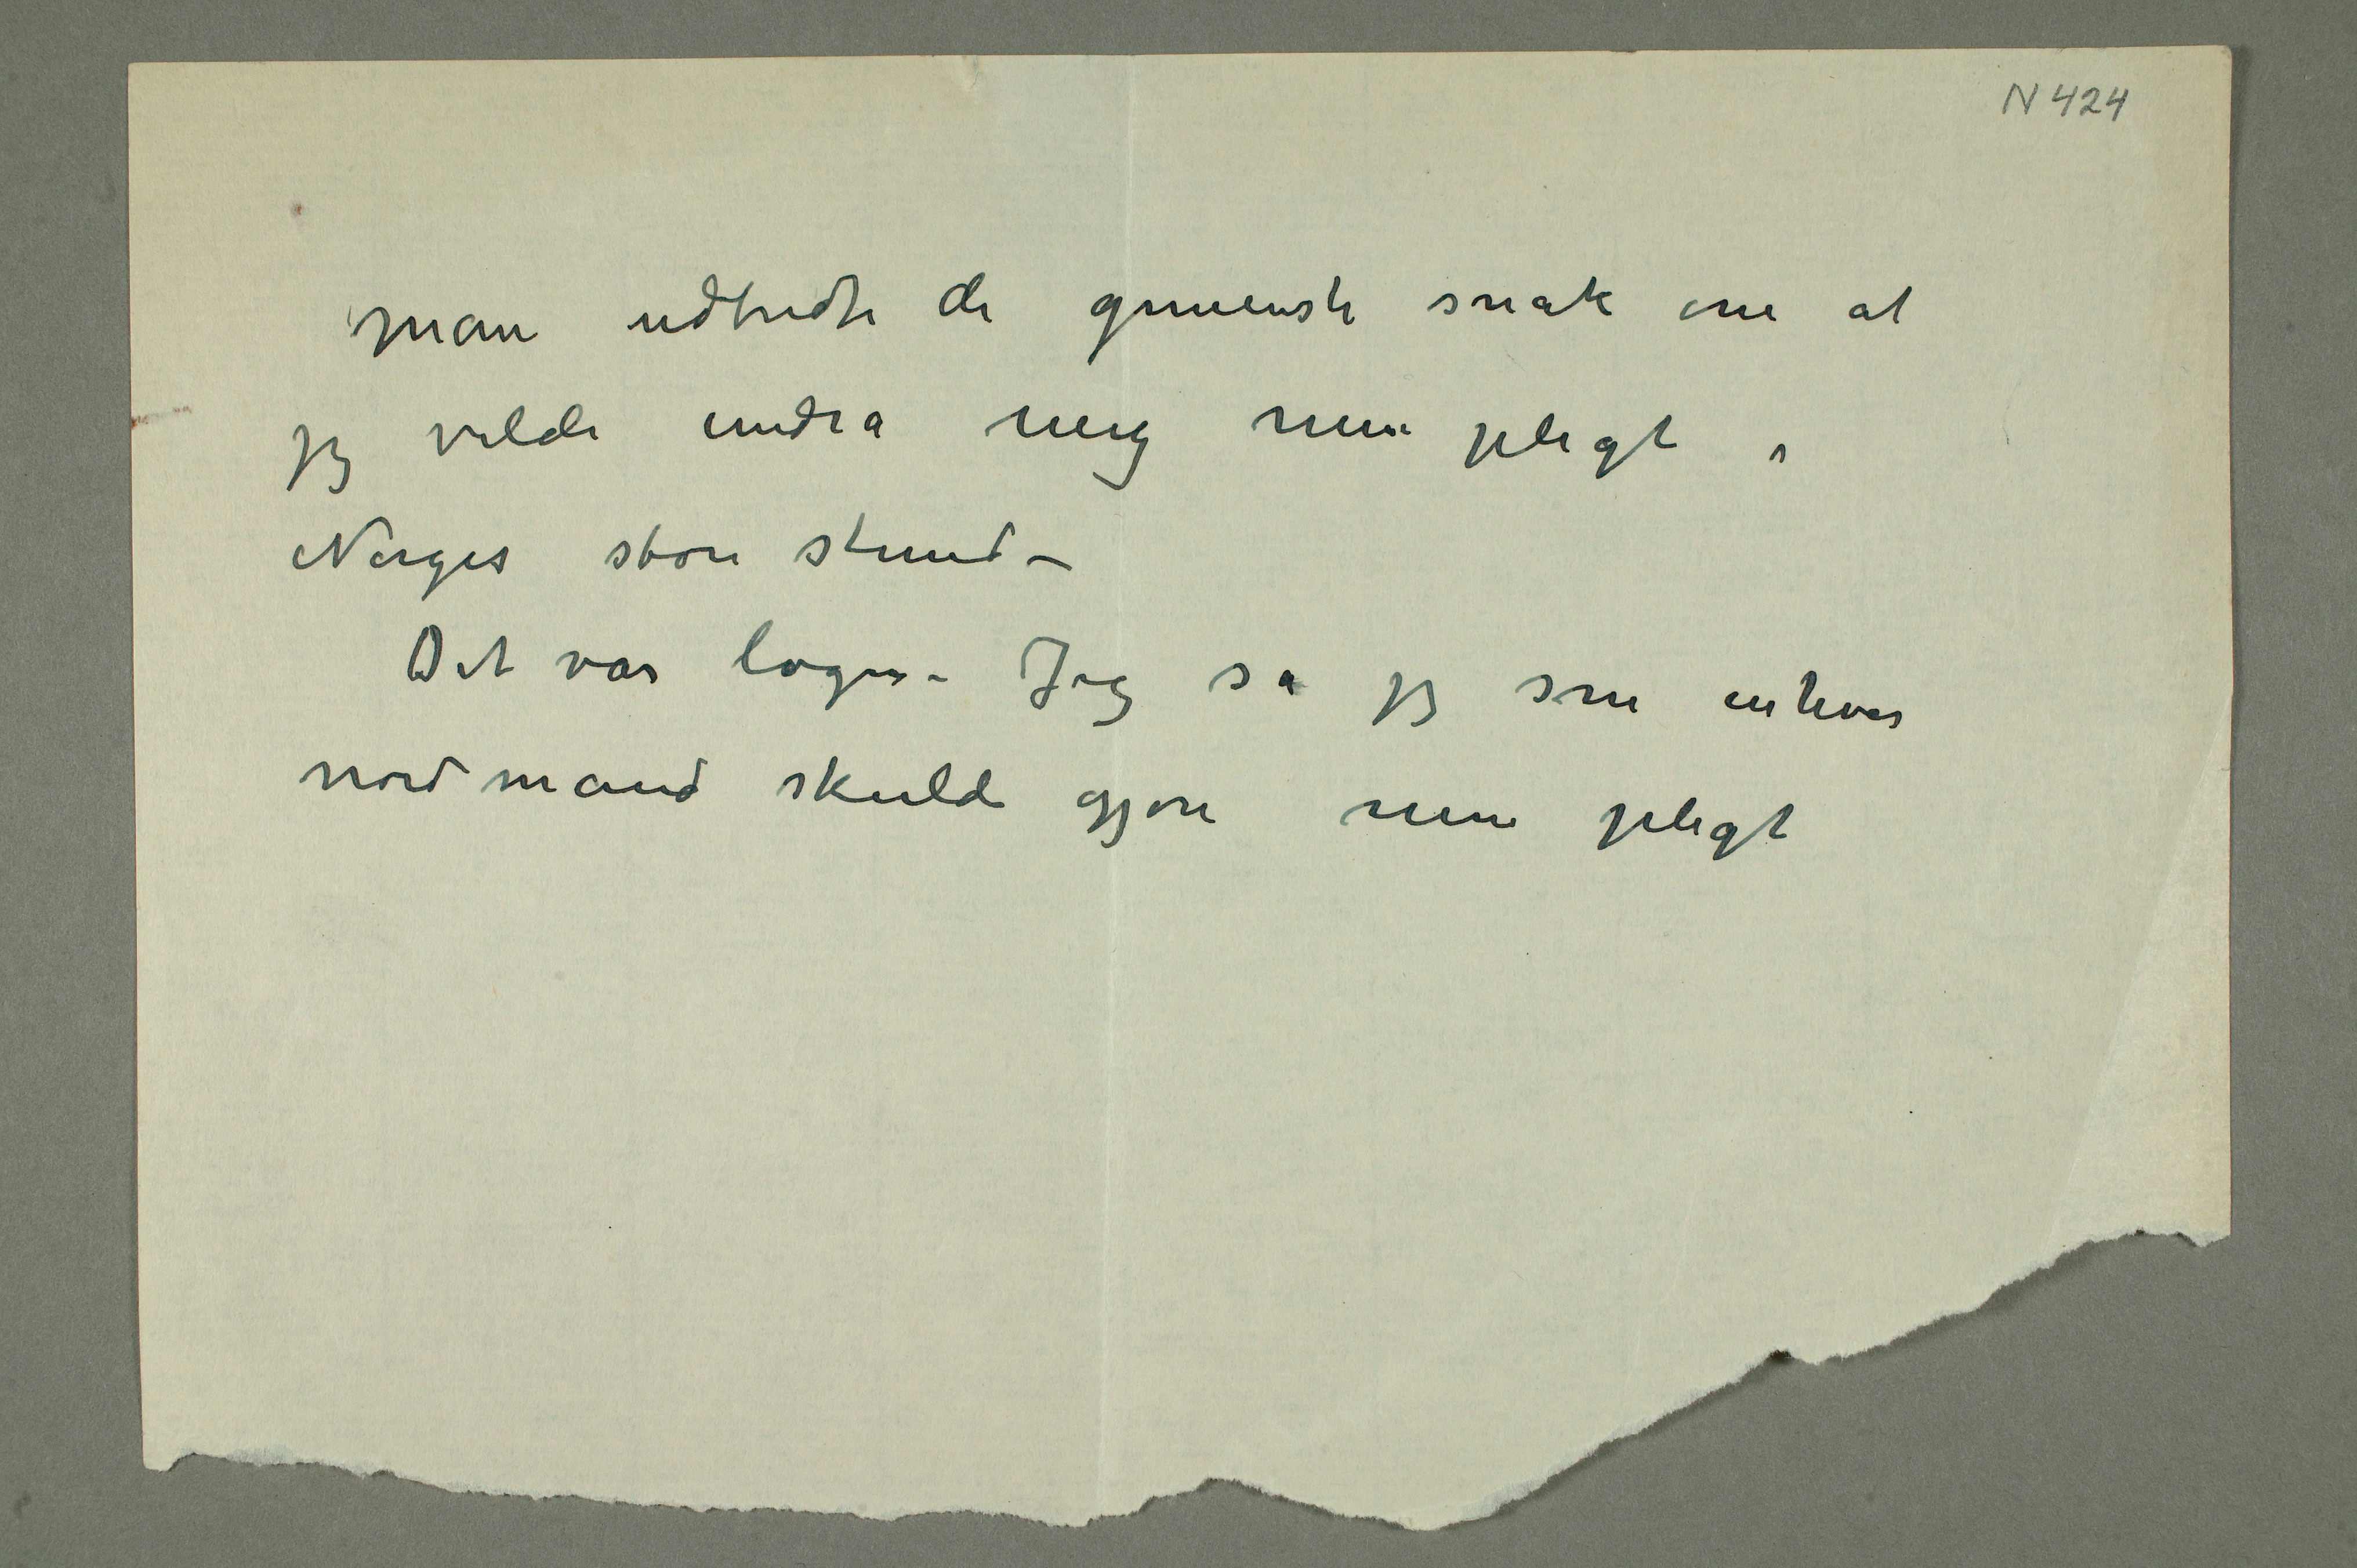 N 424
Man udbredte de gemeneste snak om at
jeg vilde undra meig min pligt i
Norges store stund –
Det var løgn – Jeg sa jeg som enhver
nordmand skulde gjøre min pligt